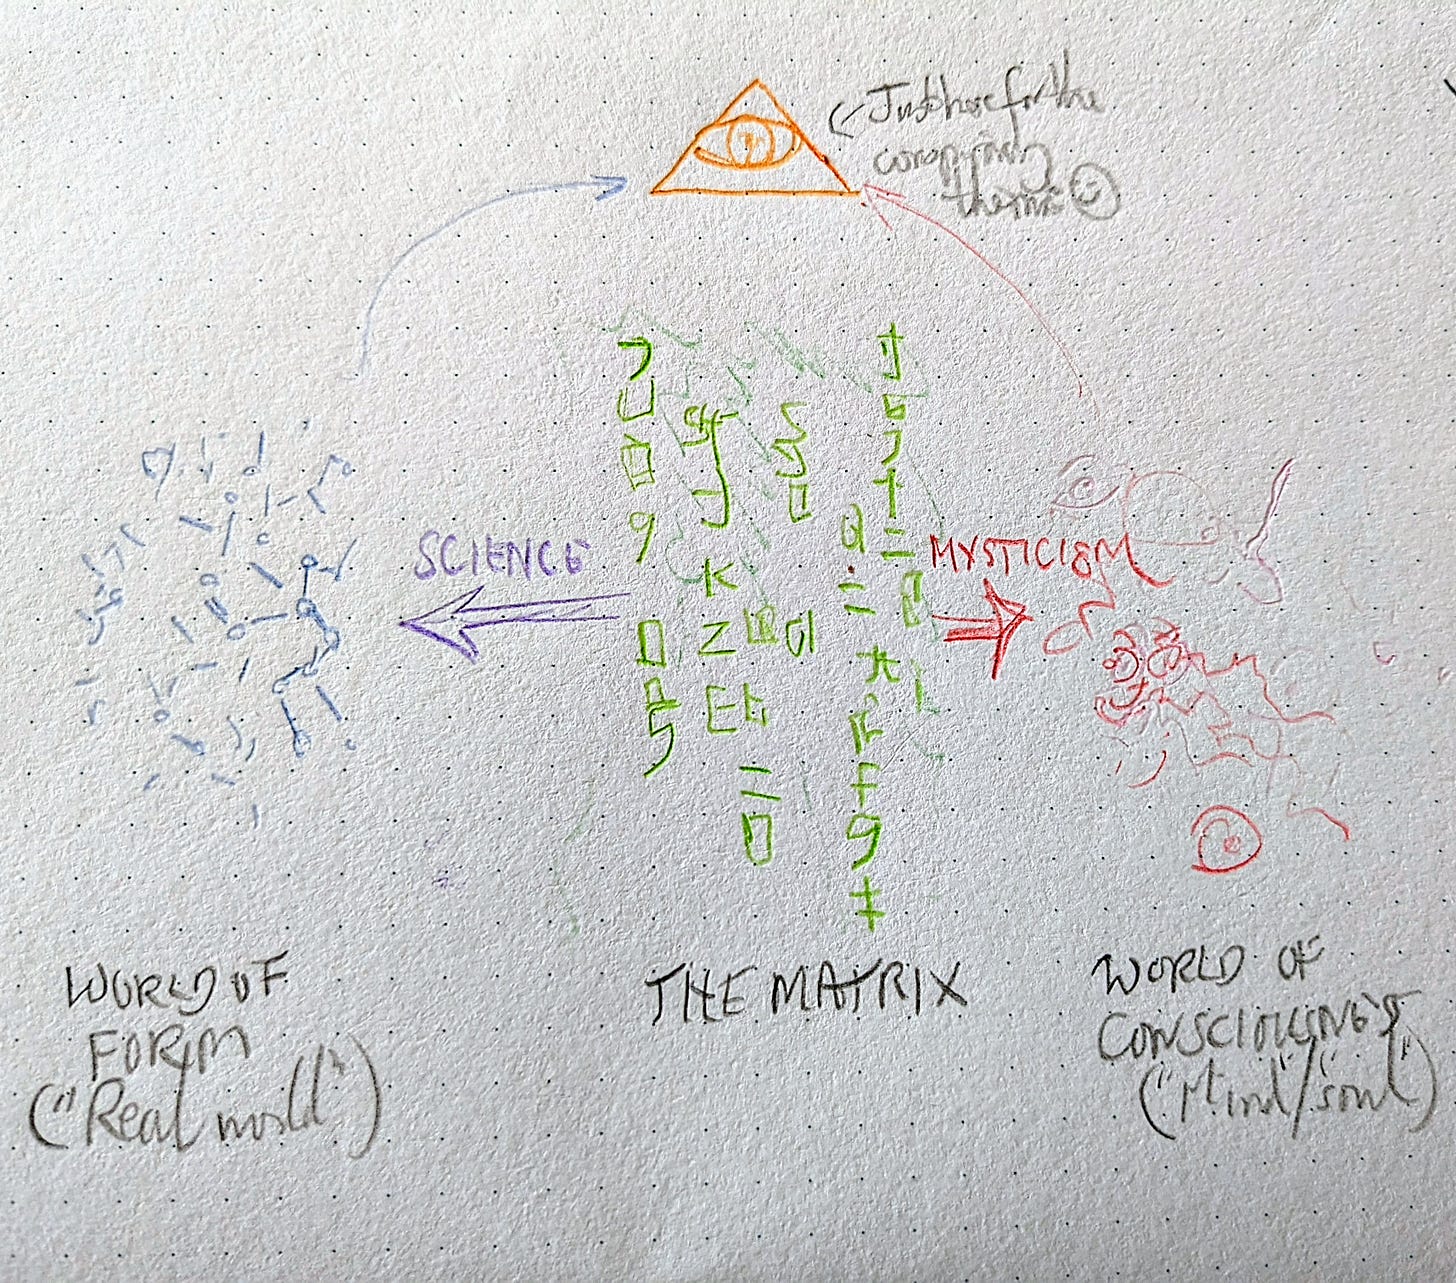 Just here for the
conspiracy
theme
SCIENCE
MYSTICISM
WORLD OF
FORM
("Real world")
THE MATRIX
WORLD OF
CONSCIOUSNESS
("Mind/soul")